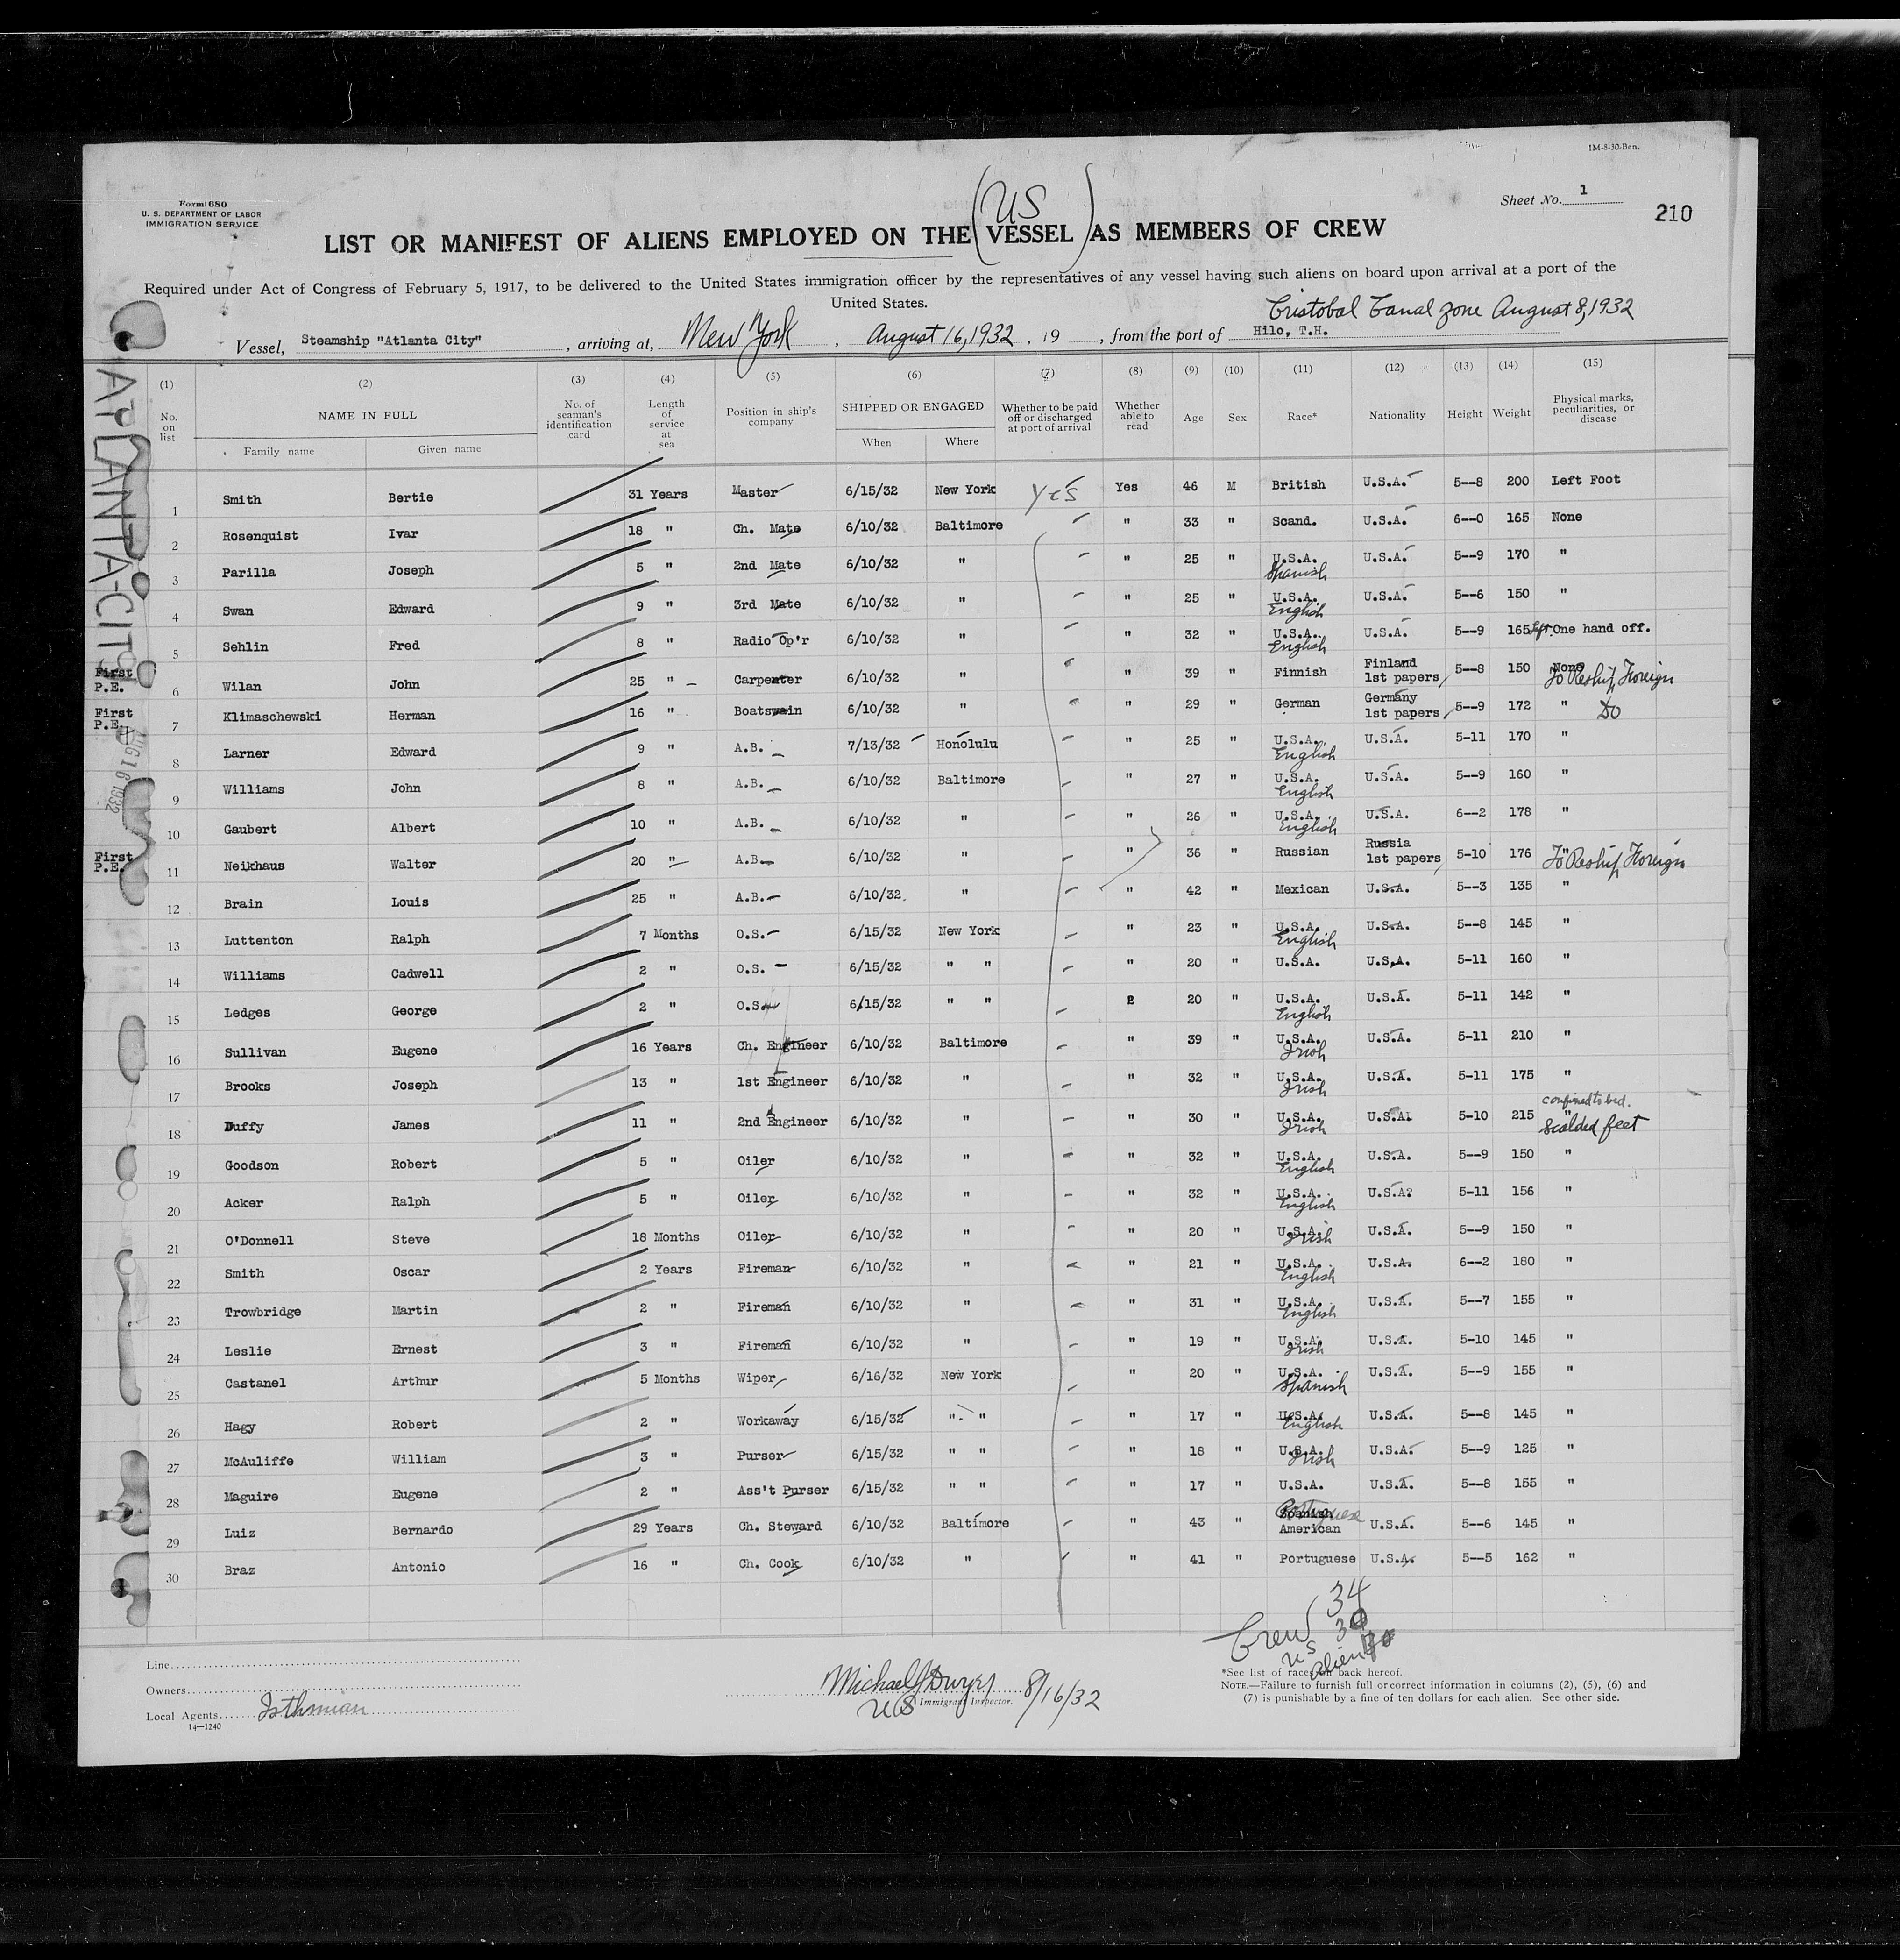 1M-8-30-Ben.
Form 680
U. S. DEPARTMENT OF LABOR
IMMIGRATION SERVICE
Sheet No. 1
210
(US)
LIST OR MANIFEST OF ALIENS EMPLOYED ON THE VESSEL AS MEMBERS OF CREW
Required under Act of Congress of February 5, 1917, to be delivered to the United States immigration officer by the representatives of any vessel having such aliens on board upon arrival at a port of the
United States.
Cristobal Canal Zone August 8, 1932
Vessel, Steamship "Atlanta City", arriving at, New York, August 16, 1932, 19 , from the port of Hilo, T.H.
ATLANTA-CITY
AUG 16 1932
(1) (2) (3) (4) (5) (6) (7) (8) (9) (10) (11) (12) (13) (14) (15)
No. on list NAME IN FULL No. of seaman's identification card Length of service at sea Position in ship's company SHIPPED OR ENGAGED Whether to be paid off or discharged at port of arrival Whether able to read Age Sex Race* Nationality Height Weight Physical marks, peculiarities, or disease
Family name Given name When Where
1 Smith Bertie 31 Years Master 6/15/32 New York Yes Yes 46 M British U.S.A. 5--8 200 Left Foot
2 Rosenquist Ivar 18 " Ch. Mate 6/10/32 Baltimore " 33 " Scand. U.S.A. 6--0 165 None
3 Parilla Joseph 5 " 2nd Mate 6/10/32 " " 25 " U.S.A. Spanish U.S.A. 5--9 170 "
4 Swan Edward 9 " 3rd Mate 6/10/32 " " 25 " U.S.A. English U.S.A. 5--6 150 "
5 Sehlin Fred 8 " Radio Op'r 6/10/32 " " 32 " U.S.A. English U.S.A. 5--9 165 left One hand off.
First P.E. 6 Wilan John 25 " Carpenter 6/10/32 " " 39 " Finnish Finland 1st papers 5--8 150 None To Reship Foreign
First P.E. 7 Klimaschewski Herman 16 " Boatswain 6/10/32 " " 29 " German Germany 1st papers 5--9 172 " Do
8 Larner Edward 9 " A.B. 7/13/32 Honolulu " 25 " U.S.A. English U.S.A. 5-11 170 "
9 Williams John 8 " A.B. 6/10/32 Baltimore " 27 " U.S.A. English U.S.A. 5--9 160 "
10 Gaubert Albert 10 " A.B. 6/10/32 " " 26 " U.S.A. English U.S.A. 6--2 178 "
First P.E. 11 Neikhaus Walter 20 " A.B. 6/10/32 " " 36 " Russian Russia 1st papers 5-10 176 " To Reship Foreign
12 Brain Louis 25 " A.B. 6/10/32 " " 42 " Mexican U.S.A. 5--3 135 "
13 Luttenton Ralph 7 Months O.S. 6/15/32 New York " 23 " U.S.A. English U.S.A. 5--8 145 "
14 Williams Cadwell 2 " O.S. 6/15/32 " " " 20 " U.S.A. U.S.A. 5-11 160 "
15 Ledges George 2 " O.S. 6/15/32 " " 2 20 " U.S.A. English U.S.A. 5-11 142 "
16 Sullivan Eugene 16 Years Ch. Engineer 6/10/32 Baltimore " 39 " U.S.A. Irish U.S.A. 5-11 210 "
17 Brooks Joseph 13 " 1st Engineer 6/10/32 " " 32 " U.S.A. Irish U.S.A. 5-11 175 "
18 Duffy James 11 " 2nd Engineer 6/10/32 " " 30 " U.S.A. Irish U.S.A. 5-10 215 " confined to bed. scalded feet
19 Goodson Robert 5 " Oiler 6/10/32 " " 32 " U.S.A. English U.S.A. 5--9 150 "
20 Acker Ralph 5 " Oiler 6/10/32 " " 32 " U.S.A. English U.S.A? 5-11 156 "
21 O'Donnell Steve 18 Months Oiler 6/10/32 " " 20 " U.S.A. Irish U.S.A. 5--9 150 "
22 Smith Oscar 2 Years Fireman 6/10/32 " " 21 " U.S.A. English U.S.A. 6--2 180 "
23 Trowbridge Martin 2 " Fireman 6/10/32 " " 31 " U.S.A. English U.S.A. 5--7 155 "
24 Leslie Ernest 3 " Fireman 6/10/32 " " 19 " U.S.A. Irish U.S.A. 5-10 145 "
25 Castanel Arthur 5 Months Wiper 6/16/32 New York " 20 " U.S.A. Spanish U.S.A. 5--9 155 "
26 Hagy Robert 2 " Workaway 6/15/32 " " " 17 " U.S.A. English U.S.A. 5--8 145 "
27 McAuliffe William 3 " Purser 6/15/32 " " " 18 " U.S.A. Irish U.S.A. 5--9 125 "
28 Maguire Eugene 2 " Ass't Purser 6/15/32 " " " 17 " U.S.A. U.S.A. 5--8 155 "
29 Luiz Bernardo 29 Years Ch. Steward 6/10/32 Baltimore " 43 " Portuguese Spanish American U.S.A. 5--6 145 "
30 Braz Antonio 16 " Ch. Cook 6/10/32 " " 41 " Portuguese U.S.A. 5--5 162 "
Crew 34
US 30
Alien
Line
Owners
Local Agents Isthmian
14—1240
Michael J Dwyer 8/16/32
US Immigrant Inspector.
*See list of races on back hereof.
NOTE.—Failure to furnish full or correct information in columns (2), (5), (6) and
(7) is punishable by a fine of ten dollars for each alien. See other side.